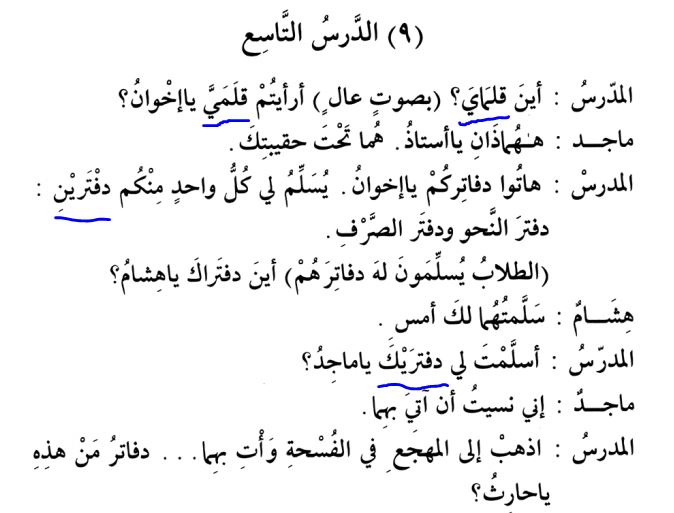 (٩) الدَّرسُ التَّاسِع
المدّرسُ : أينَ قلمَايَ؟ (بصوتٍ عالٍ) أرأيتُمْ قلَمَيَّ ياإخْوانُ؟
ماجـــد : هـٰهُماذَانِ ياأستاذُ. هُما تَحْتَ حقيبتِكَ.
المدرسْ : هاتُوا دفاتِركُمْ ياإخوانُ. يُسَلِّمُ لي كُلُّ واحدٍ مِنْكُم دفْتَريْنِ :
دفترَ النَّحو ودفتَر الصَّرْفِ.
(الطلابُ يُسلِّمَونَ لهَ دفاتِرَهُمْ) أينَ دفتَراكَ ياهِشامُ؟
هِشَـــامٌ : سَلَّمتُهُما لكَ أمس .
المدرّسُ : أسلَّمْتَ لي دفترَيْكَ ياماجِدُ؟
ماجـــدٌ : إني نسيتُ أن آتيَ بهِما.
المدرسُ : اذهبْ إلى المهجَع في الفُسْحةِ وَأْتِ بهِما... دفاترُ مَنْ هذِهِ
ياحارِثُ؟